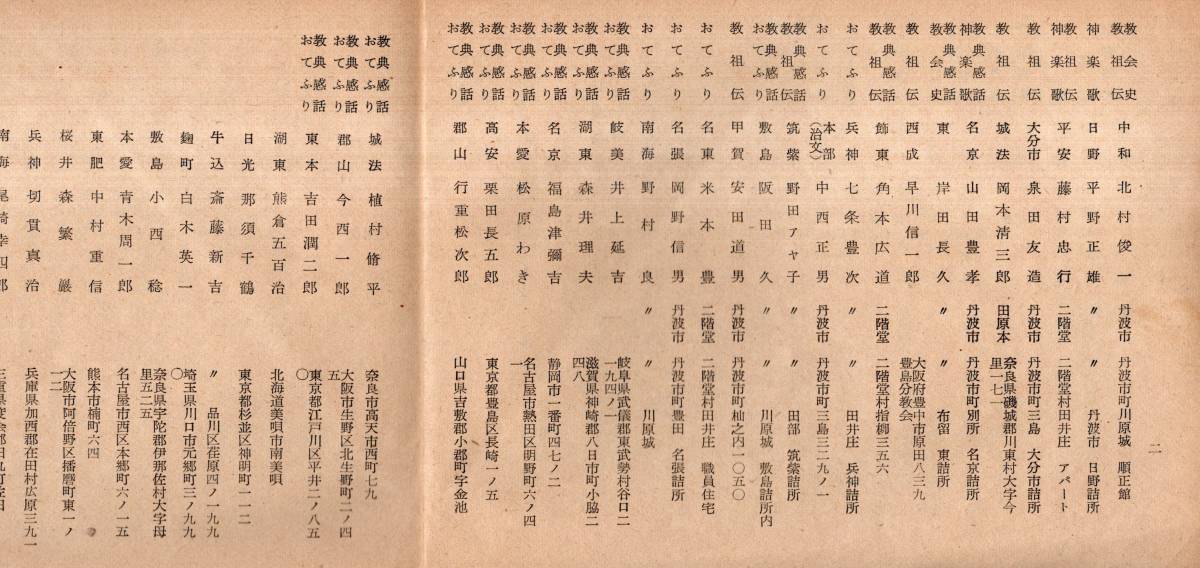 二
教会史 教祖伝 中和 北村俊一 丹波市 丹波市町川原城 順正館
神楽歌 日野 平野正雄 〃 丹波市 日野詰所
教祖伝 神楽歌 平安 藤村忠行 二階堂 二階堂村田井庄 アパート
教祖伝 大分市 泉田友造 丹波市 丹波市町三島 大分市詰所
教祖伝 城法 岡本清三郎 田原本 奈良県磯城郡川東村大字今里一七一
教典感話 神楽歌 名京 山田豊孝 丹波市 丹波市町別所 名京詰所
教典感話 教会史 東 岸田長久 〃 布留 東詰所
教祖伝 西成 早川信一郎 大阪府豊中市原田八三九 豊島分教会
教典感話 教祖伝 飾東 角本広道 二階堂 二階堂村指柳三五六
おてふり 兵神 七条豊次 〃 田井庄 兵神詰所
おてふり 本部(治文) 中西正男 丹波市 丹波市町三島三二九ノ一
教典感話 教祖伝 筑紫 野田アヤ子 〃 田部 筑紫詰所
教典感話 おてふり 敷島 阪田久 〃 川原城 敷島詰所内
教祖伝 甲賀 安田道男 丹波市 丹波市町杣之内一〇五〇
おてふり 名東 米本豊 二階堂 二階堂村田井庄 職員住宅
おてふり 名張 岡野信男 丹波市 丹波市町豊田 名張詰所
おてふり 南海 野村良 〃 〃 川原城
教典感話 おてふり 岐美 井上延吉 岐阜県武儀郡東武勢村谷口二一九四ノ一
教典感話 おてふり 湖東 森井理夫 滋賀県神崎郡八日市町小脇二四八
教典感話 おてふり 名京 福島津彌吉 静岡市一番町四七ノ二
教典感話 おてふり 本愛 松原わき 名古屋市熱田区明野町六ノ四一
教典感話 おてふり 高安 栗田長五郎 東京都豊島区長崎一ノ五
教典感話 おてふり 郡山 行重松次郎 山口県吉敷郡小郡町字金池
教典感話 おてふり 城法 植村脩平 奈良市高天市西町七九
教典感話 おてふり 郡山 今西一郎 大阪市生野区北生野町二ノ四五
教典感話 おてふり 東本 吉田潤二郎 東京都江戸川区平井二ノ八五〇
湖東 熊倉五百治 北海道美唄市南美唄
日光 那須千鶴 東京都杉並区神明町一一二
牛込 斎藤新吉 〃 品川区荏原四ノ一九九
麹町 白木英一 埼玉県川口市元郷町三ノ九九〇
敷島 小西稔 奈良県宇陀郡伊那佐村大字母里五二五
本愛 青木周一郎 名古屋市西区本郷町六ノ一五
東肥 中村重信 熊本市楠町六四
桜井 森繁巌 大阪市阿倍野区播磨町東一ノ一二
兵神 切貫真治 兵庫県加西郡在田村広原三九一
南海 尾崎幸四郎